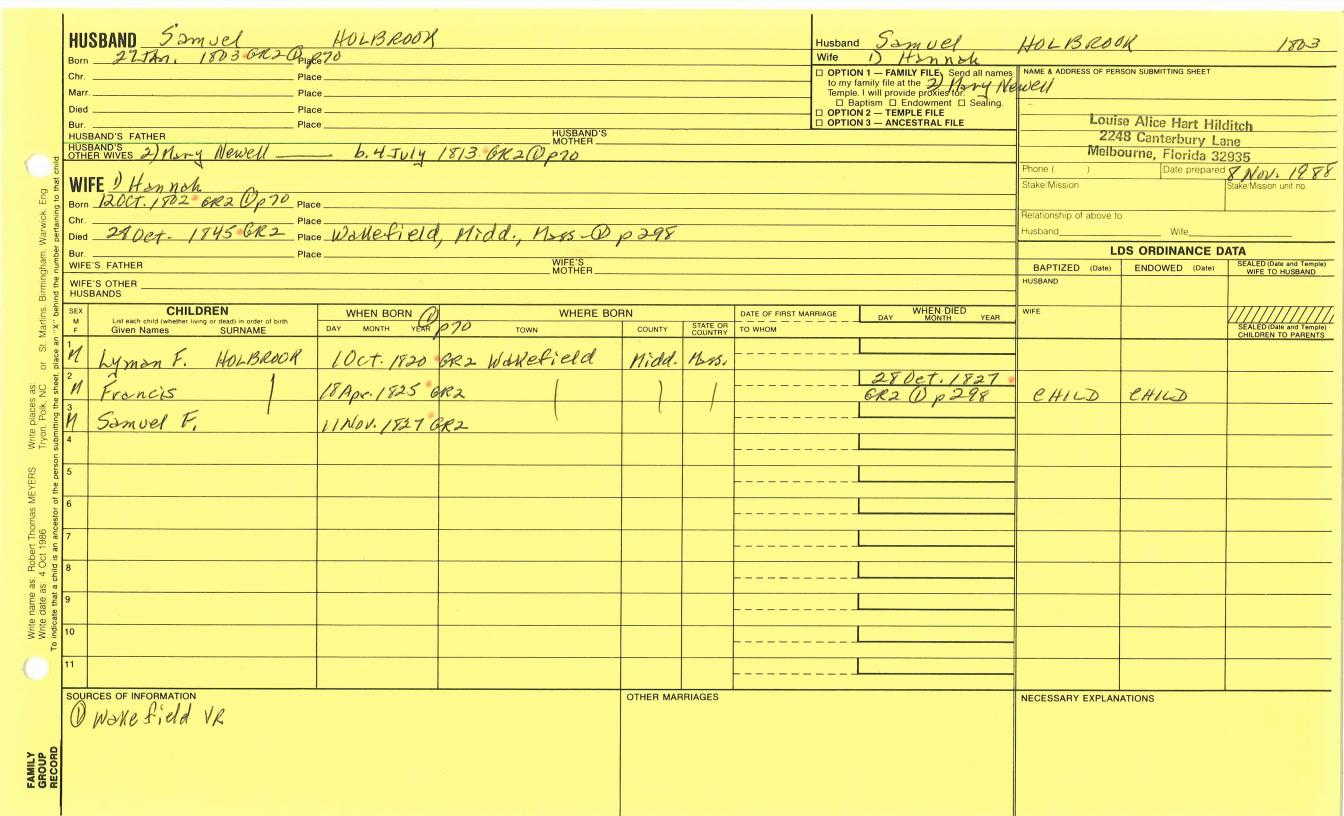 HUSBAND Samuel HOLBROOK
Born 27 Jan. 1803 GR2 ① p70 Place
Chr. Place
Marr. Place
Died Place
Bur. Place
HUSBAND'S FATHER HUSBAND'S MOTHER
HUSBAND'S OTHER WIVES 2) Mary Newell b. 4 July 1813 GR2 ① p70
WIFE 1) Hannah
Born 12 OCT. 1802 GR2 ① p70 Place
Chr. Place
Died Oct. 1845 GR2 Place Wakefield, Midd., Mass ① p298
Bur. Place
WIFE'S FATHER WIFE'S MOTHER
WIFE'S OTHER HUSBANDS
Husband Samuel HOLBROOK 1803
Wife 1) Hannah
2) Mary Newell
☐ OPTION 1 — FAMILY FILE, Send all names
to my family file at the
Temple. I will provide proxies for:
☐ Baptism ☐ Endowment ☐ Sealing.
☐ OPTION 2 — TEMPLE FILE
☐ OPTION 3 — ANCESTRAL FILE
NAME & ADDRESS OF PERSON SUBMITTING SHEET
Louise Alice Hart Hilditch
2248 Canterbury Lane
Melbourne, Florida 32935
Phone ( ) Date prepared 8 Nov. 1988
Stake/Mission Stake/Mission unit no.
Relationship of above to
Husband Wife
LDS ORDINANCE DATA
BAPTIZED (Date) ENDOWED (Date) SEALED (Date and Temple) WIFE TO HUSBAND
HUSBAND
WIFE
SEALED (Date and Temple) CHILDREN TO PARENTS
SEX M F
CHILDREN
List each child (whether living or dead) in order of birth
Given Names SURNAME
WHEN BORN ① p70
DAY MONTH YEAR
WHERE BORN
TOWN COUNTY STATE OR COUNTRY
DATE OF FIRST MARRIAGE
TO WHOM
WHEN DIED
DAY MONTH YEAR
1 M Lyman F. HOLBROOK 1 Oct. 1820 GR2 Wakefield Midd. Mass.
2 M Francis 18 Apr. 1825 GR2 28 Oct. 1827 GR2 ① p298 CHILD CHILD
3 M Samuel F. 11 Nov. 1827 GR2
4
5
6
7
8
9
10
11
SOURCES OF INFORMATION
① Wakefield VR
OTHER MARRIAGES
NECESSARY EXPLANATIONS
Write name as: Robert Thomas MEYERS Write places as: Tryon, Polk, NC or St. Martins, Birmingham, Warwick, Eng
Write date as: 4 Oct 1986
To indicate that a child is an ancestor of the person submitting the sheet, place an "X" behind the number pertaining to that child.
FAMILY
GROUP
RECORD